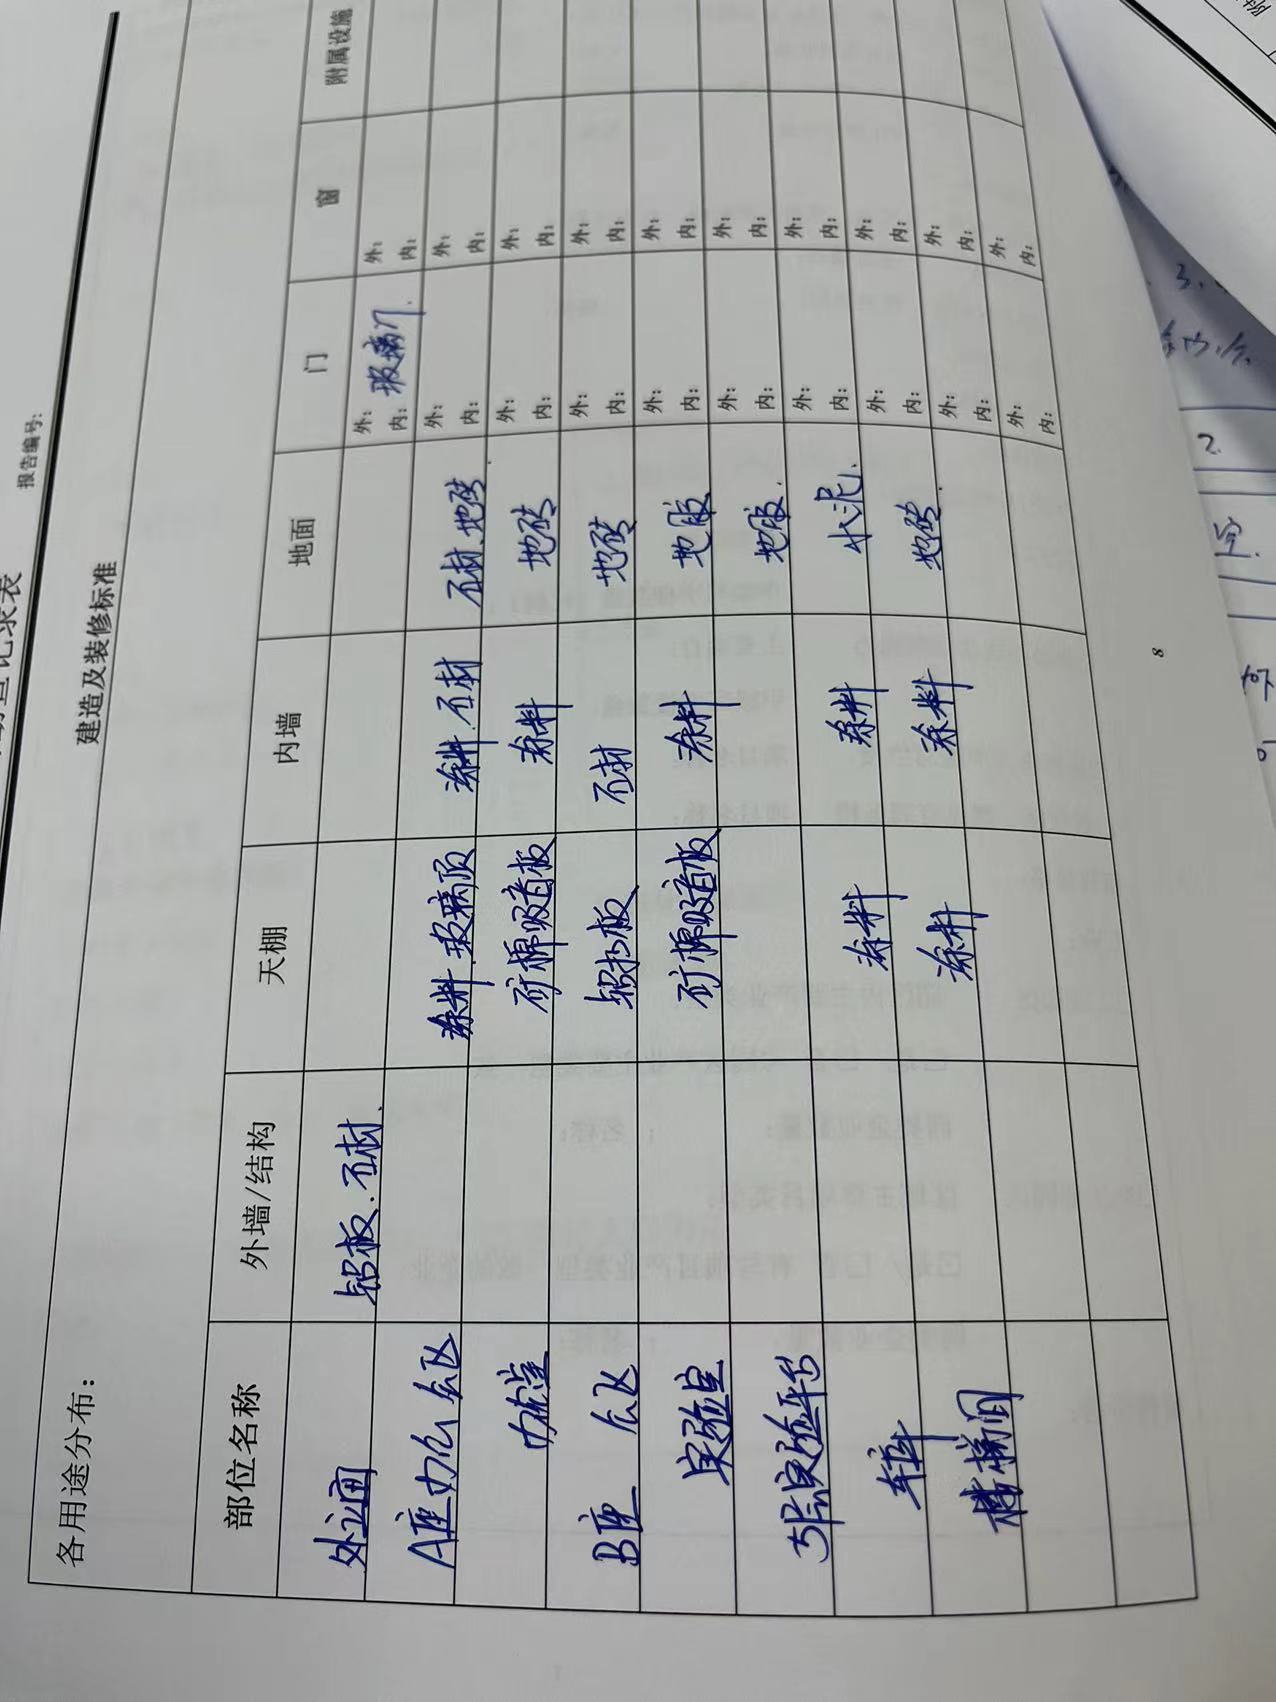 记录表
报告编号:
建造及装修标准
各用途分布:
部位名称 外墙/结构 天棚 内墙 地面 门 窗 附属设施
外立面 铝板.石材. 外: 玻璃门. 内: 外: 内:
A座办公 公区 涂料.玻璃顶 涂料.石材 石材.地砖 外: 内: 外: 内:
办公室 矿棉吸音板 涂料 地砖 外: 内: 外: 内:
B座 公区 铝扣板 石材 地砖 外: 内: 外: 内:
实验室 矿棉吸音板 涂料 地胶 外: 内: 外: 内:
5层实验平台 地胶. 外: 内: 外: 内:
车库 涂料 涂料 水泥. 外: 内: 外: 内:
楼梯间 涂料 涂料 地砖. 外: 内: 外: 内:
外: 内: 外: 内:
外: 内: 外: 内:
8